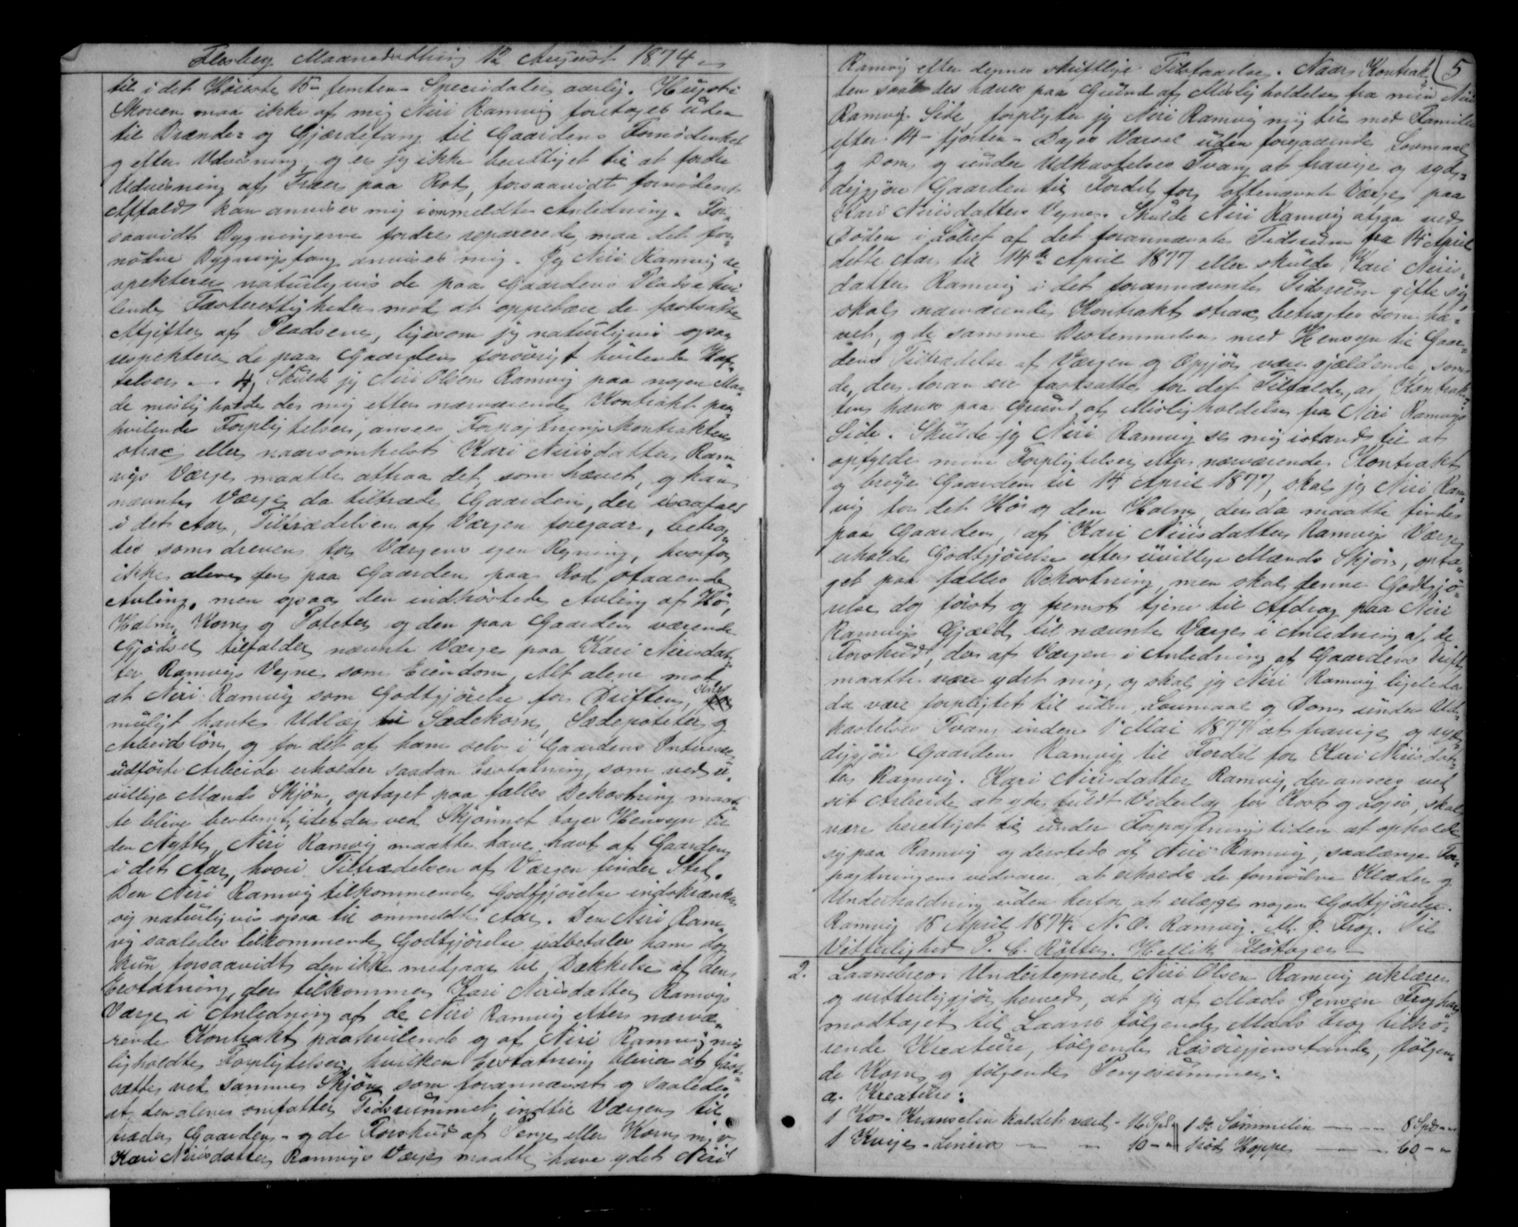 Flesberg Maanedsthing 12 August 1874
til i det Høieste 15 - femten - Speciedaler aarlig. Hugst i
Skoven maa ikke af mig Niri Ramvig foretages uden
til Brænde- og Gjærdefang til Gaardens Fornødenhed
og efter Udvisning, og er jeg ikke berettiget til at fordre
Udvisning af Træer paa Rod, forsaavidt fornødent
Affald kan anvises mig i ommeldte Anledning. For-
saavidt Bygningerne fordres reparerede, maa det for-
nødne Bygningsfang anvises mig. Jeg Niri Ramvig re-
spekterer naturligvis de paa Gaardens Pladse hvi-
lende Fæsterettigheder mod at oppebære de fastsatte
Afgifter af Pladsene, ligesom jeg naturligvis ogsaa
respekterer de paa Gaarden forøvrigt hvilende Hæf-
telser. - 4, Skulde jeg Niri Olsen Ramvig paa nogen Maa-
de misligholde de mig efter nærværende Kontrakt paa-
hvilende Forpligtelser, ansees Forpagtningskontrakten
strax eller naarsomhelst Kari Nirisdatter Ram-
vigs Værge maatte attraa det, som hævet, og kan
nævnte Værge da tiltræde Gaarden, der isaafald
i det Aar, Tiltrædelsen af Værgen foregaar, betrag-
tes som dreven for Værgens egen Regning, hvorfor
ikke alene den paa Gaarden paa Rod staaende
Avling, men ogsaa den indhøstede Avling af Hø,
Halm, Korn og Poteter og den paa Gaarden værende
Gjødsel tilfalder nævnte Værge paa Kari Nirisdat-
ter Ramvigs Vegne som Eiendom, Alt alene mod
at Niri Ramvig som Godtgjørelse for Driften, for
muligt havte Udlæg til Sædekorn, Sædepoteter og
Arbeidsløn, og for det af ham selv i Gaardens Interesse
udførte Arbeide erholder saadan Erstatning, som ved u-
villige Mænds Skjøn, optaget paa fælles Bekostning maat-
te blive bestemt, idet der ved Skjønnet tages Hensyn til
den Nytte, Niri Ramvig maatte have havt af Gaarden
i det Aar, hvori Tiltrædelsen af Værgen finder Sted.
Den Niri Ramvig tilkommende Godtgjørelse indskrænker
sig naturligvis ogsaa til ommeldte Aar. Den Niri Ram-
vig saaledes tilkommende Godtgjørelse udbetales ham dog
kun forsaavidt den ikke medgaar til Dækkelse af den
Erstatning, der tilkommer Kari Nirisdatter Ramvigs
Værge i Anledning af de Niri Ramvig efter nærvæ-
rende Kontrakt paahvilende og af Niri Ramvig mis-
ligholdte Forpligtelser, hvilken Erstatning bliver at fast-
sætte ved samme Skjøn som forannævnt og saaledes
at den alene omfatter Tidsrummet, indtil Værgen til-
træder Gaarden - og de Forskud af Penge eller Korn m. v.
Kari Nirisdatter Ramvigs Værge maatte have ydet Niri
5
Ramvig efter dennes skriftlige Tilstaaelse. Naar Kontrak-
ten saaledes hæves paa Grund af Misligholdelse fra min Niri
Ramvigs Side, forpligter jeg Niri Ramvig mig til med Familie
efter 14 - fjorten - Dages Varsel uden foregaaende Lovmaal
og Dom og under Udkastelses Tvang at fravige og ryd-
diggjøre Gaarden til Fordel for oftenævnte Værge paa
Kari Nirisdatters Vegne. Skulde Niri Ramvig afgaa ved
Døden i Løbet af det forannævnte Tidsrum fra 14 April
dette Aar til 14de April 1877 eller skulde Kari Niris-
datter Ramvig i det forannævnte Tidsrum gifte sig,
skal nærværende Kontrakt strax betragtes som hæ-
vet, og de samme Bestemmelser med Hensyn til Gaar-
dens Tiltrædelse af Værgen og Opgjør være gjældende, som
de, der foran ere fastsatte for det Tilfælde, at Kontrak-
ten hæves paa Grund af Misligholdelse fra Niri Ramvigs
Side. Skulde jeg Niri Ramvig se mig istand til at
opfylde mine Forpligtelser efter nærværende Kontrakt
og bruge Gaarden til 14 April 1877, skal jeg Niri Ram-
vig for det Hø og den Halm, der da maatte findes
paa Gaarden, af Kari Nirisdatter Ramvigs Værge
erholde Godtgjørelse efter uvillige Mænds Skjøn, opta-
get paa fælles Bekostning, men skal denne Godtgjø-
relse dog først og fremst tjene til Afdrag paa Niri
Ramvigs Gjæld til nævnte Værge i Anledning af de
Forskud, der af Værgen i Anledning af Gaardens Drift
maatte være ydet mig, og skal jeg Niri Ramvig ligeledes
da være forpligtet til uden Lovmaal og Dom under Ud-
kastelses Tvang inden 1 Mai 1877 at fravige og ryd-
diggjøre Gaarden Ramvig til Fordel for Kari Nirisdat-
ter Ramvig. Kari Nirisdatter Ramvig, der ansees ved
sit Arbeide at yde fuldt Vederlag for Kost og Logis, skal
være berettiget til under Forpagtningstiden at opholde
sig paa Ramvig og dersteds af Niri Ramvig, saalænge For-
pagtningen vedvarer at erholde de fornødne Klæder og
Underholdning uden herfor at erlægge nogen Godtgjørelse.
Ramvig 18 April 1874. N. O. Ramvig. M. J. Frog. Til
Vitterlighed Hellik
2. Laanebrev. Undertegnede Niri Olsen Ramvig erklærer
og vitterliggjør herved, at jeg af Mads Jensen Frog har
modtaget til Laans følgende Mads Frog tilhø-
rende Kreature, følgende Løsøregjenstande, følgen-
de Korn og følgende Pengesummer:
a. Kreature:
1 Ko - Kranselin kaldet værd - 16 Spd. 1 Do. Sommelin - - - 8 Spd. -
1 Kvige - Linros - - 10 - - 1 rød Hoppe - - - 60 - -